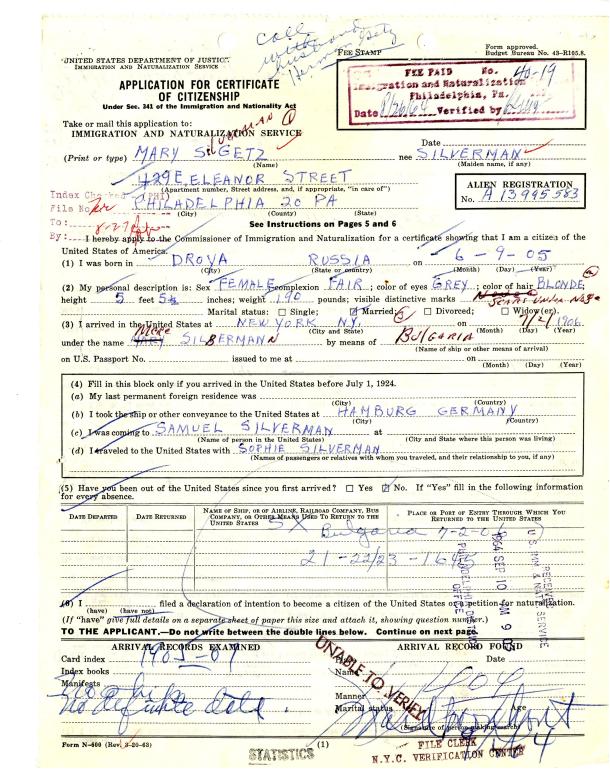 call
with
husband
Herman Getz
UNITED STATES DEPARTMENT OF JUSTICE
IMMIGRATION AND NATURALIZATION SERVICE
FEE STAMP
Form approved.
Budget Bureau No. 43-R105.8.
APPLICATION FOR CERTIFICATE
OF CITIZENSHIP
Under Sec. 341 of the Immigration and Nationality Act
FEE PAID No. 40-19
Immigration and Naturalization
Philadelphia, Pa.
Date 8/26/64 Verified by
Take or mail this application to:
IMMIGRATION AND NATURALIZATION SERVICE
Date
(Print or type) MARY S. GETZ nee SILVERMAN
(Name) (Maiden name, if any)
429 E. ELEANOR STREET
(Apartment number, Street address, and, if appropriate, "in care of")
ALIEN REGISTRATION
No. A 13 995 583
PHILADELPHIA 20 PA
(City) (County) (State)
Index Checked (PHI)
File No.
To:
By:
See Instructions on Pages 5 and 6
I hereby apply to the Commissioner of Immigration and Naturalization for a certificate showing that I am a citizen of the
United States of America.
(1) I was born in DROYA RUSSIA on 6-9-05
(City) (State or country) (Month) (Day) (Year)
(2) My personal description is: Sex FEMALE; complexion FAIR; color of eyes GREY; color of hair BLONDE;
height 5 feet 5½ inches; weight 190 pounds; visible distinctive marks
Marital status: Single; Married; Divorced; Widow(er).
(3) I arrived in the United States at NEW YORK N.Y. on 7/2/1906
(City and State) (Month) (Day) (Year)
under the name SILBERMANN by means of BULGARIA
(Name of ship or other means of arrival)
on U.S. Passport No. issued to me at on
(City) (Month) (Day) (Year)
(4) Fill in this block only if you arrived in the United States before July 1, 1924.
(a) My last permanent foreign residence was
(City) (Country)
(b) I took the ship or other conveyance to the United States at HAMBURG GERMANY
(City) (Country)
(c) I was coming to SAMUEL SILVERMAN at
(Name of person in the United States) (City and State where this person was living)
(d) I traveled to the United States with SOPHIE SILVERMAN
(Names of passengers or relatives with whom you traveled, and their relationship to you, if any)
(5) Have you been out of the United States since you first arrived? Yes No. If "Yes" fill in the following information
for every absence.
DATE DEPARTED DATE RETURNED NAME OF SHIP, OR OF AIRLINE, RAILROAD COMPANY, BUS COMPANY, OR OTHER MEANS USED TO RETURN TO THE UNITED STATES PLACE OR PORT OF ENTRY THROUGH WHICH YOU RETURNED TO THE UNITED STATES
SX Bulgaria 7-2-06
RECEIVED
U.S. IMM. & NAT. SERVICE
1964 SEP 10 AM 9
PHILADELPHIA DISTRICT
OFFICE
(6) I filed a declaration of intention to become a citizen of the United States or a petition for naturalization.
(have) (have not)
(If "have" give full details on a separate sheet of paper this size and attach it, showing question number.)
TO THE APPLICANT.—Do not write between the double lines below. Continue on next page.
ARRIVAL RECORDS EXAMINED
Card index 1905-07
Index books
Manifests
no definite date.
UNABLE TO VERIFY
ARRIVAL RECORD FOUND
Date
Name
Manner
Marital status Age
(Signature of person making search)
Form N-600 (Rev. 3-20-63)
STATISTICS
(1)
FILE CLERK
N.Y.C. VERIFICATION CENTER